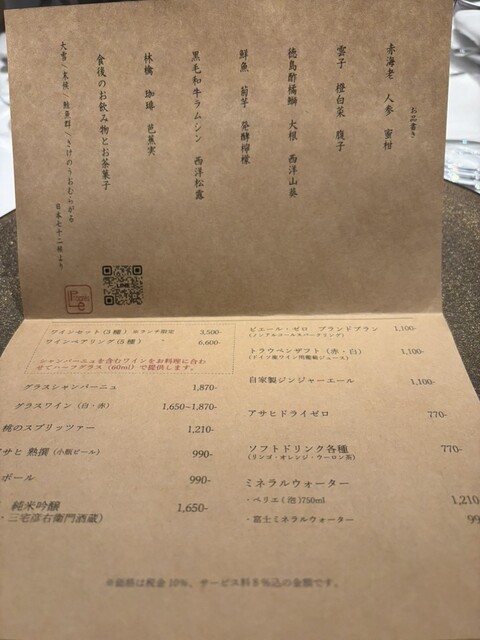 お品書き
赤海老 人参 蜜柑
雲子 橙白菜 腹子
徳島酢橘鰤 大根 西洋山葵
鮮魚 菊芋 発酵檸檬
黒毛和牛ラムシン 西洋松露
林檎 珈琲 芭蕉実
食後のお飲み物とお茶菓子
大雪/末候/鮭魚群/さけのうおむらがる
日本七十二候より
ワインセット(3種) ※ランチ限定 3,500-
ワインペアリング(5種) 6,600-
シャンパーニュを含むワインをお料理に合わ
せてハーフグラス(60ml)で提供します。
グラスシャンパーニュ 1,870-
グラスワイン(白・赤) 1,650~1,870-
桃のスプリッツァー 1,210-
サヒ 熟撰(小瓶ビール) 990-
ボール 990-
純米吟醸 1,650-
・三宅彦右衛門酒蔵)
ピエール・ゼロ ブランドブラン 1,100-
(ノンアルコールスパークリング)
トラウベンザフト(赤・白) 1,100-
(ドイツ産ワイン用葡萄ジュース)
自家製ジンジャーエール 1,100-
アサヒドライゼロ 770-
ソフトドリンク各種 770-
(リンゴ・オレンジ・ウーロン茶)
ミネラルウォーター
・ペリエ(泡)750ml 1,210
・富士ミネラルウォーター 99
※価格は税金10%、サービス料8%込の金額です。